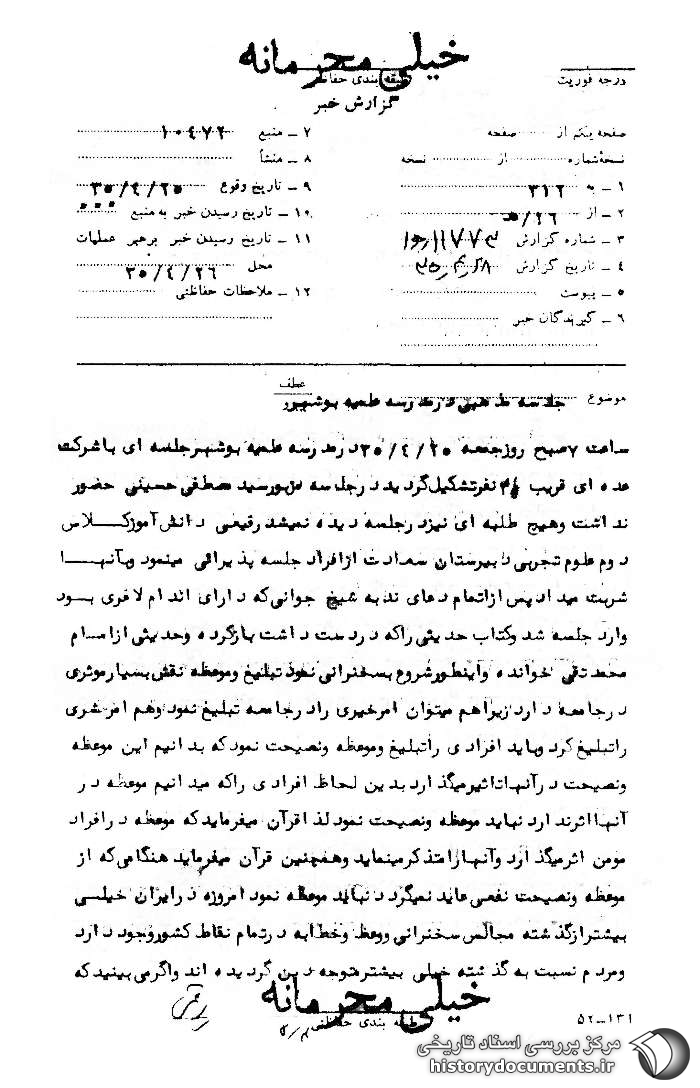 خیلی محرمانه
طبقه بندی حفاظتی
درجه فوریت
گزارش خبر
صفحه یکم از صفحه
نسخه شماره از نسخه
۱ ـ به ۳۱۲
۲ ـ از ۲۶/ه
۳ ـ شماره گزارش
۴ ـ تاریخ گزارش
۵ ـ پیوست
۶ ـ گیرندگان خبر
۷ ـ منبع ۱۰۴۷۲
۸ ـ منشأ
۹ ـ تاریخ وقوع ۳۵/۴/۲۵
۱۰ ـ تاریخ رسیدن خبر به منبع
۱۱ ـ تاریخ رسیدن خبر برهبر عملیات
محل ۳۵/۴/۲۶
۱۲ ـ ملاحظات حفاظتی
عطف
موضوع جلسه مذهبی در مدرسه علمیه بوشهر
ساعت ۷ صبح روز جمعه ۳۵/۴/۲۵ در مدرسه علمیه بوشهر جلسه ای با شرکت
عده ای قریب نفر تشکیل گردید در جلسه مزبور سید مصطفی حسینی حضور
نداشت و هیچ طلبه ای نیز در جلسه دیده نمیشد رفیعی دانش آموز کلاس
دوم علوم تجربی دبیرستان سعادت از افراد جلسه پذیرائی مینمود و بآنها
شربت میداد پس از اتمام دعای ندبه شیخ جوانی که دارای اندام لاغری بود
وارد جلسه شد و کتاب حدیثی را که در دست داشت باز کرده و حدیثی از امام
محمد تقی خوانده و اینطور شروع بسخنرانی نمود تبلیغ و موعظه نقش بسیار موثری
در جامعه دارد زیرا هم میتوان امر خیری را در جامعه تبلیغ نمود و هم امر شری
را تبلیغ کرد و باید افرادی را تبلیغ و موعظه و نصیحت نمود که بدانیم این موعظه
و نصیحت در آنها تاثیر میگذارد بدین لحاظ افرادی را که میدانیم موعظه در
آنها اثر ندارد نباید موعظه و نصیحت نمود لذا قرآن میفرماید که موعظه در افراد
مومن اثر میگذارد و آنها را متذکر مینماید و همچنین قرآن میفرماید هنگامی که از
موعظه و نصیحت نفعی عاید نمیگردد نباید موعظه نمود امروزه در ایران خیلی
بیشتر از گذشته مجالس سخنرانی و وعظ و خطابه در تمام نقاط کشور وجود دارد
و مردم نسبت به گذشته خیلی بیشتر متوجه دین گردیده اند و اگر می بینید که
خیلی محرمانه
طبقه بندی حفاظتی
۵۲-۱۳۱
مرکز بررسی اسناد تاریخی
historydocuments.ir